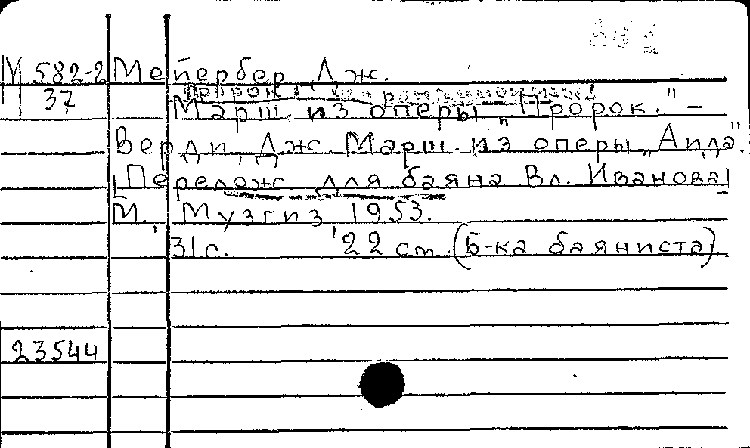 М 582-2 Мейербер, Дж.
37 Марш из оперы „Пророк." –
Верди, Дж. Марш из оперы „Аида".
[Перелож. для баяна Вл. Иванова]
М., Музгиз, 1953.
31 с. 22 см. (Б-ка баяниста)
23544